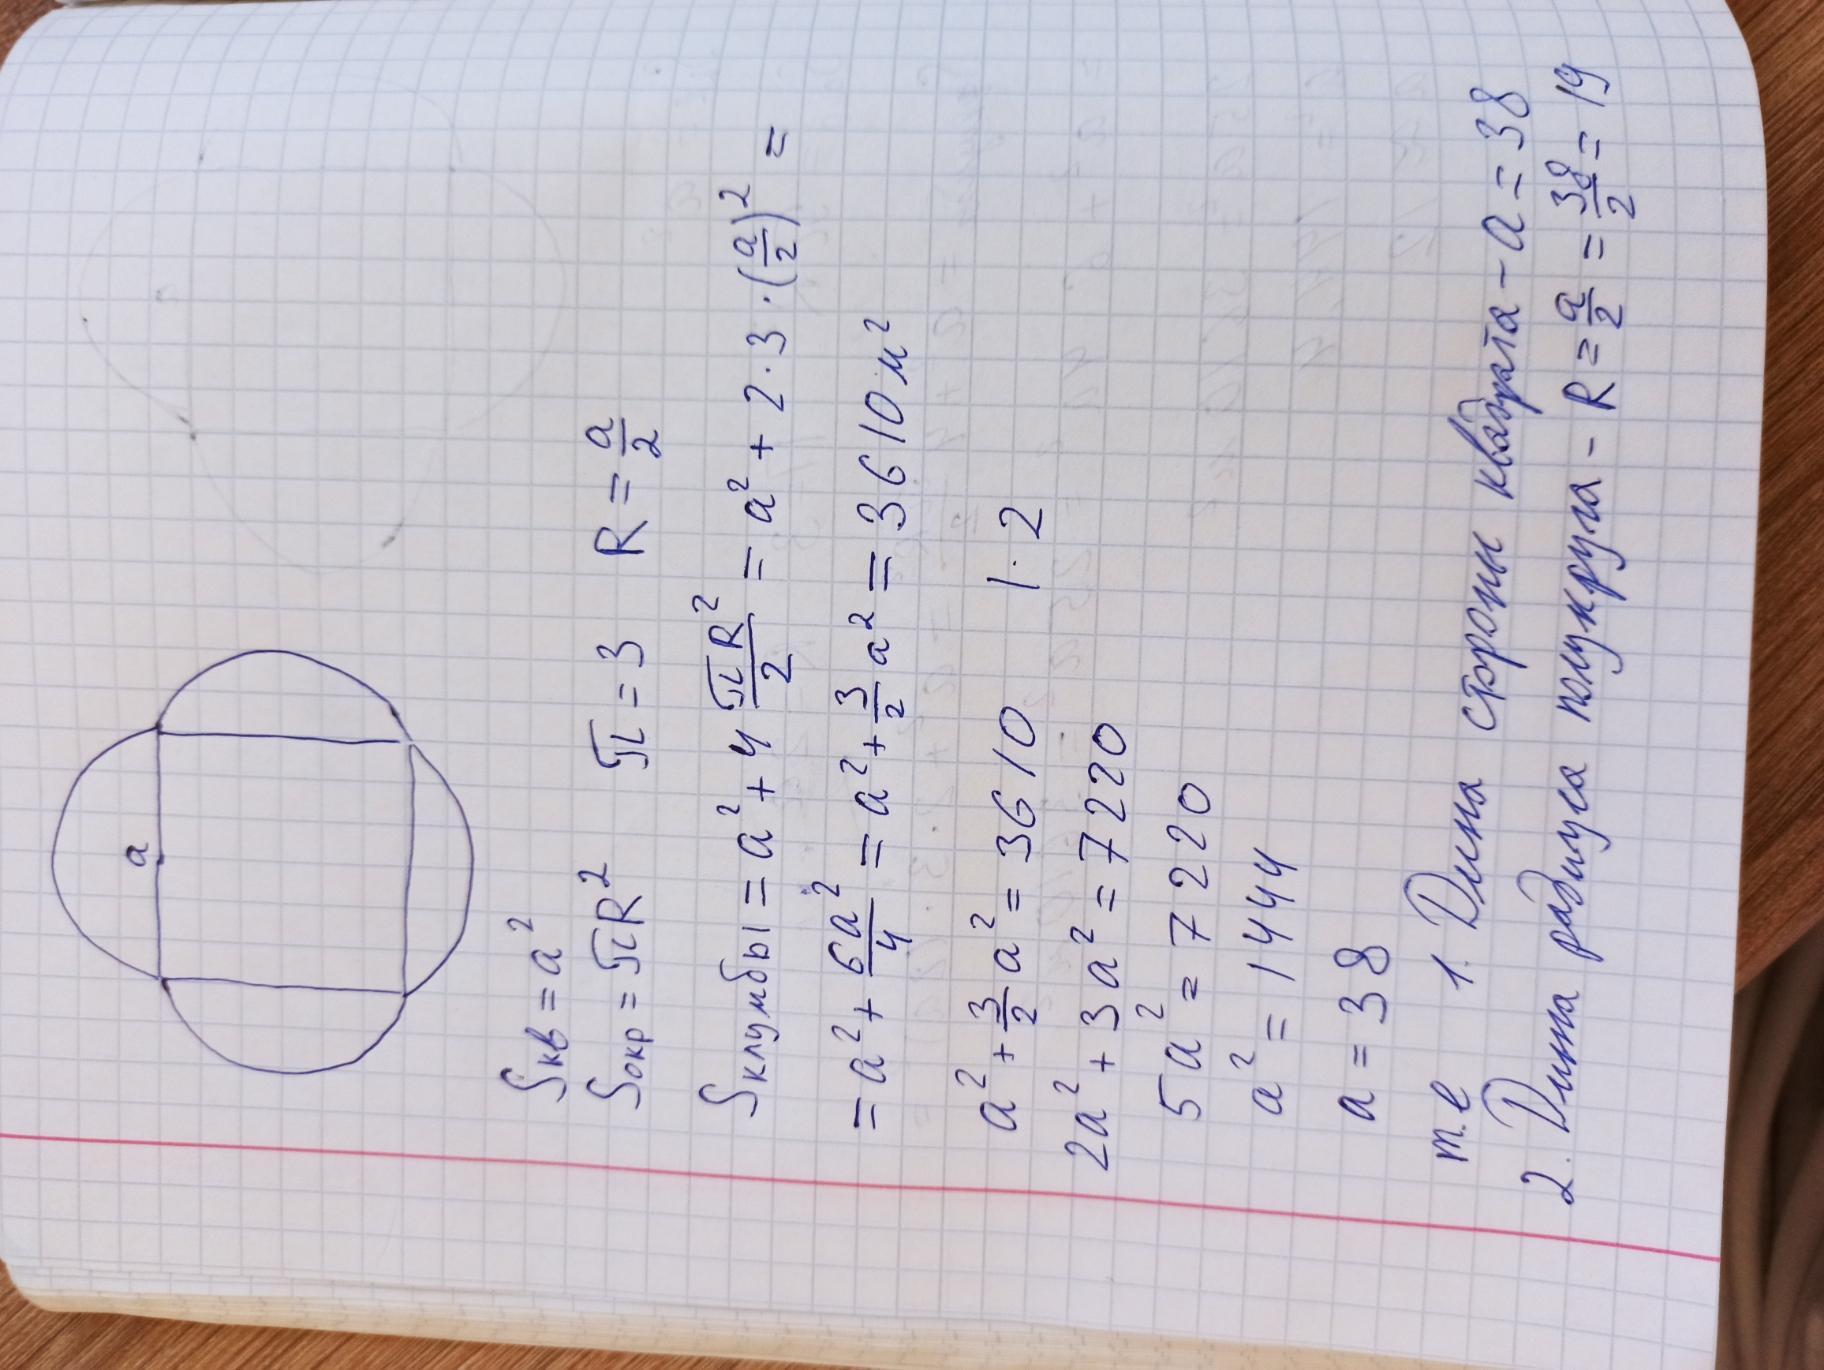 a
Sкв = a²
Sокр = πR² π = 3 R = a/2
Sклумбы = a² + 4 πR²/2 = a² + 2·3·(a/2)² =
= a² + 6a²/4 = a² + 3/2 a² = 3610 м²
a² + 3/2 a² = 3610 |·2
2a² + 3a² = 7220
5a² = 7220
a² = 1444
a = 38
т.е 1. Длина стороны квадрата - a = 38
2. Длина радиуса полукруга - R = a/2 = 38/2 = 19